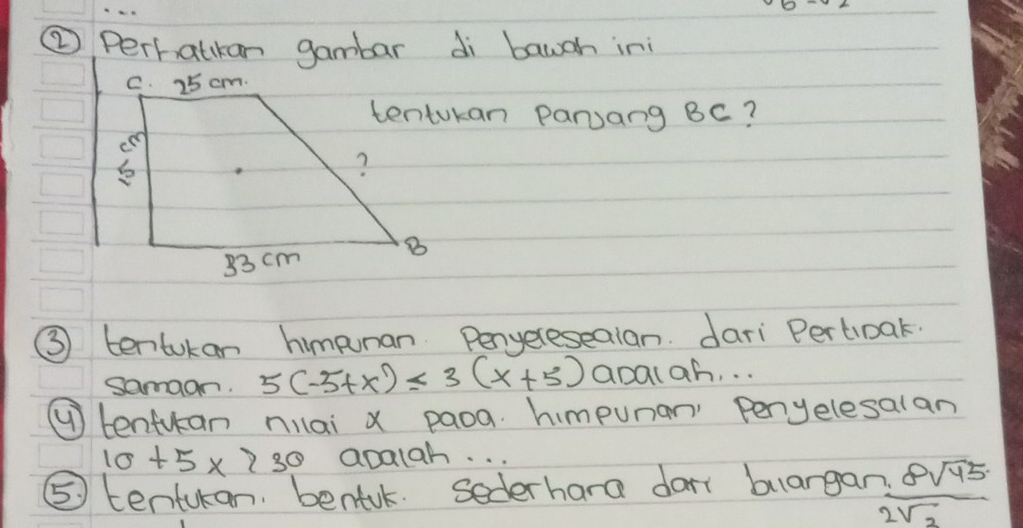 ...
② Perhatikan gambar di bawah ini
C. 25 cm.
tentukan Panjang BC?
15 cm
?
B
33 cm
③ tentukan himpunan Penyelesealan. dari Pertidak.
samaan. 5(-5+x) ≤ 3 (x+5) adalah...
④ tentukan nilai x pada. himpunan Penyelesaian
10 + 5x ≥ 30 adalah...
⑤. tentukan. bentuk. Sederhana dari bilangan. 8√45
2√3